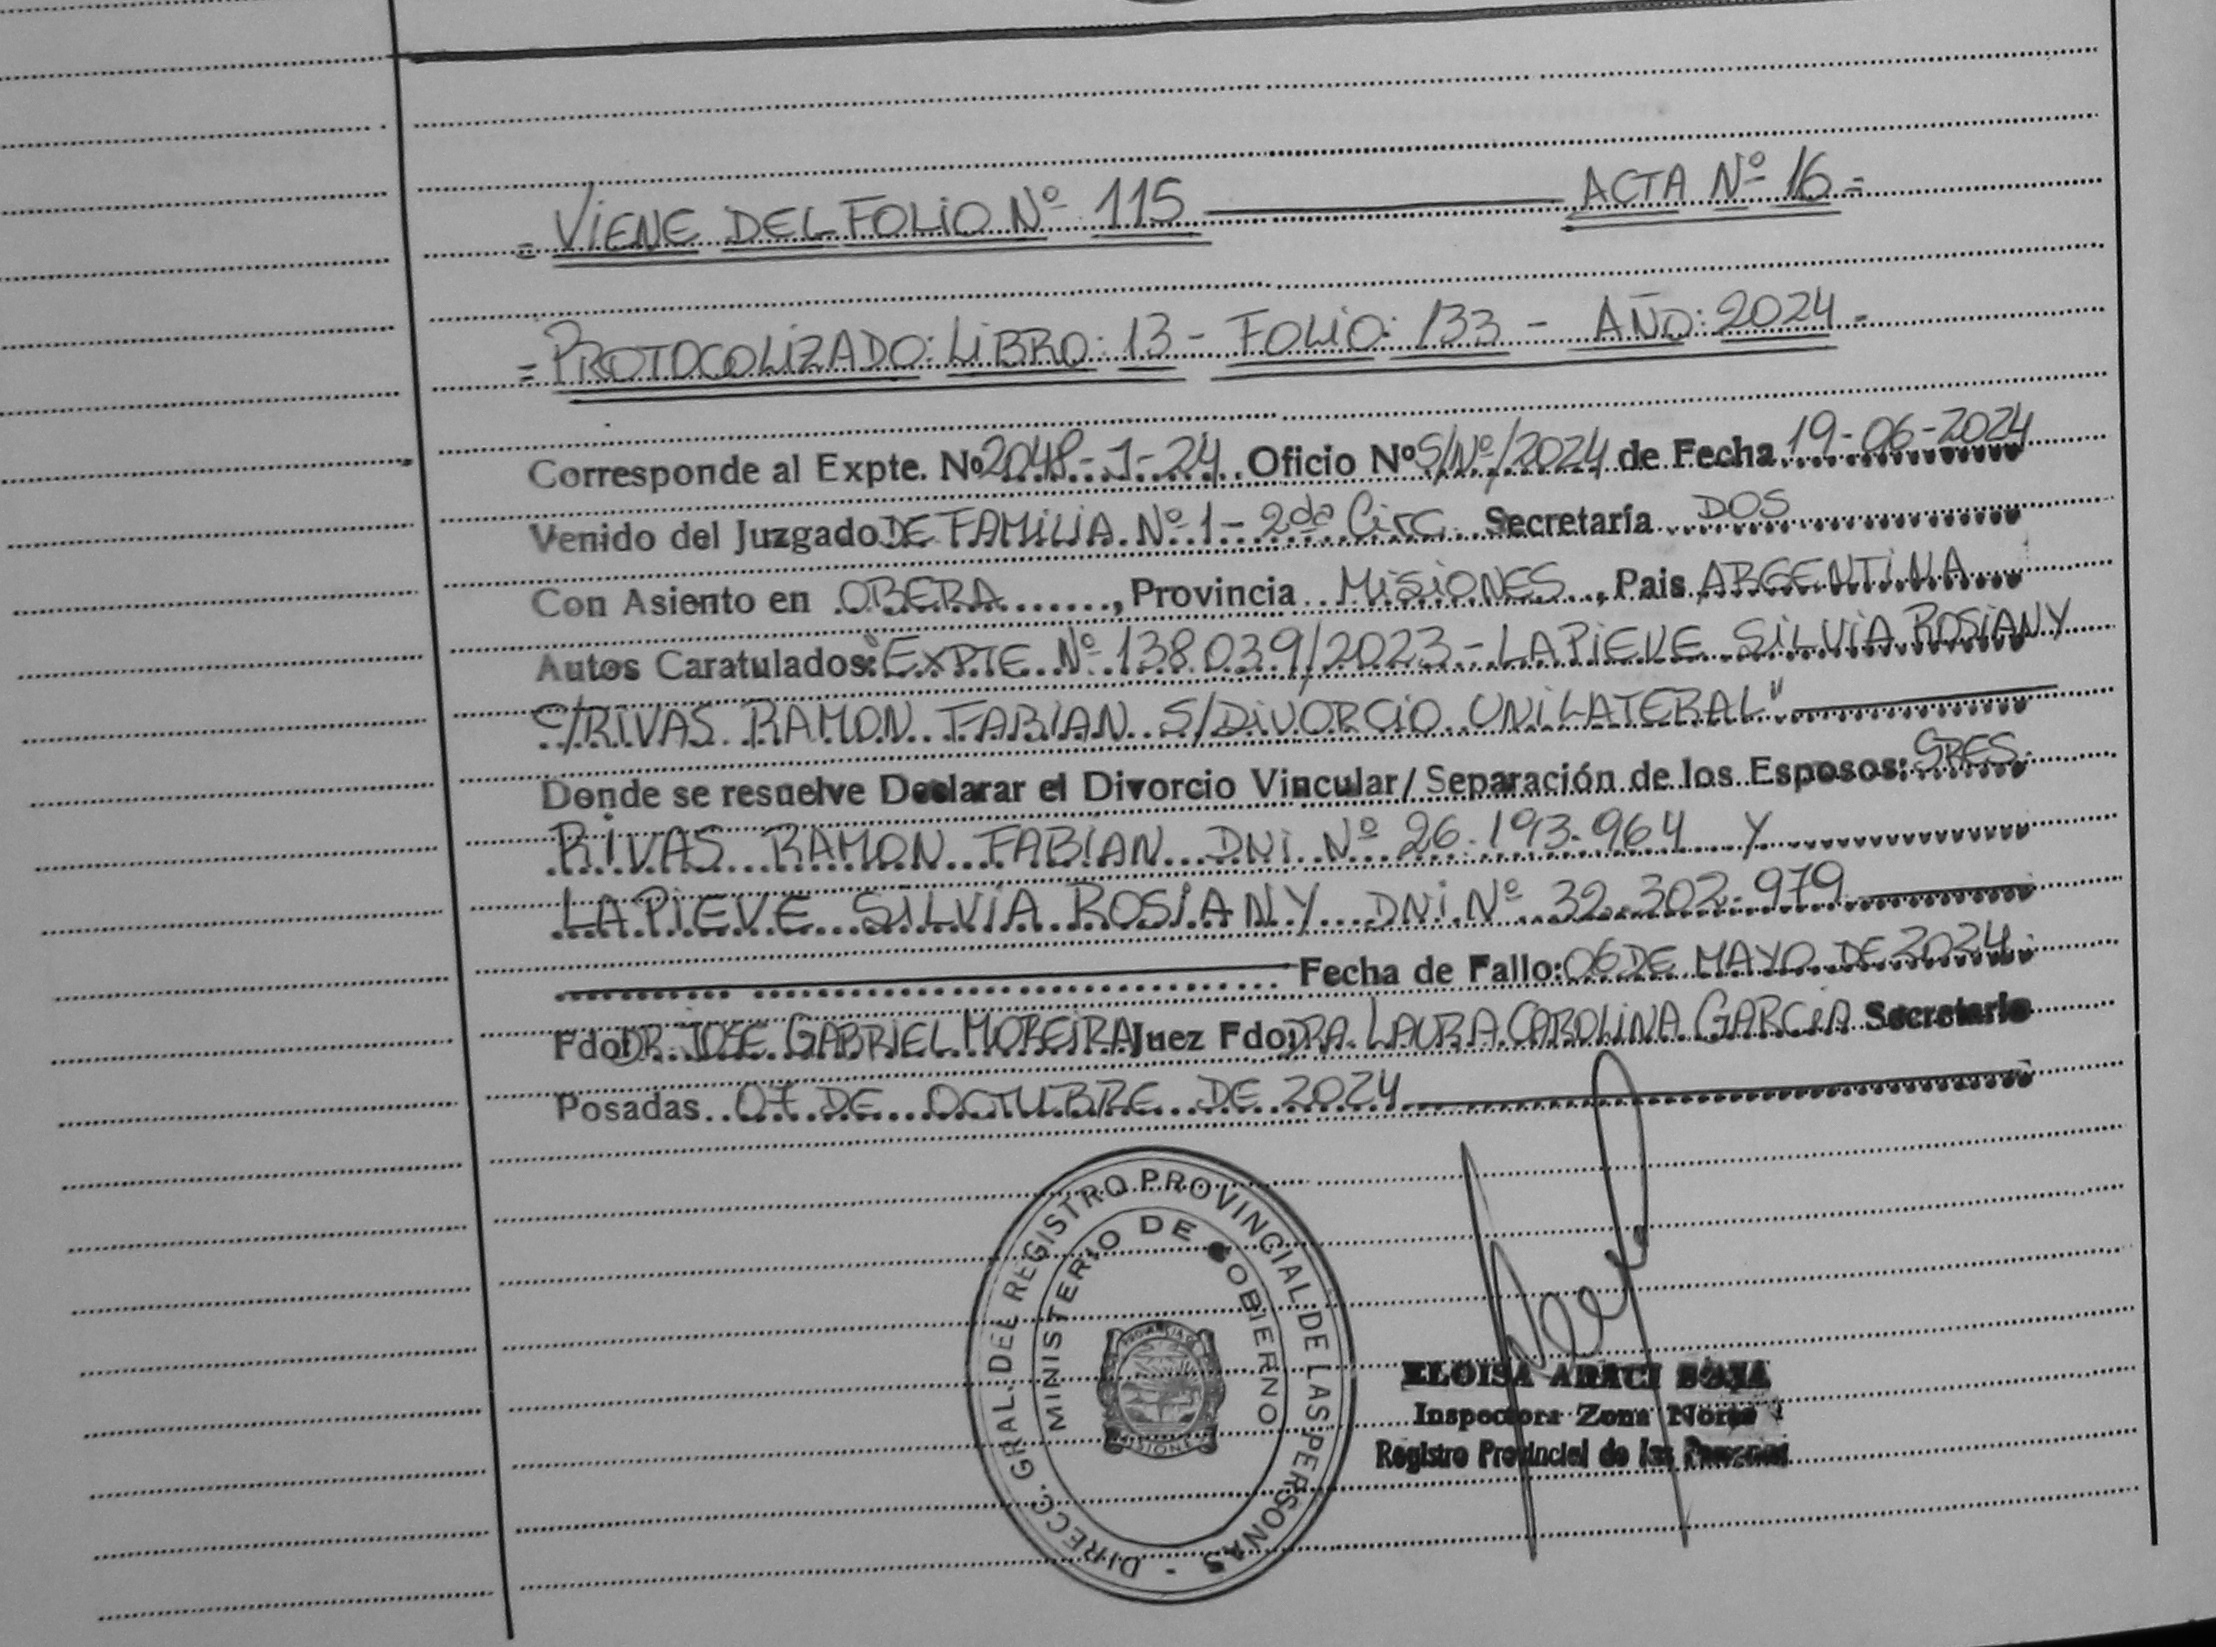 = VIENE DEL FOLIO Nº 115 ACTA Nº 16 =
= PROTOCOLIZADO: LIBRO: 13 - FOLIO: 133 - AÑO: 2024 -
Corresponde al Expte. Nº 2048-J-24. Oficio Nº S/Nº/2024 de Fecha 19-06-2024
Venido del Juzgado DE FAMILIA Nº 1 - 2da Circ. Secretaría DOS
Con Asiento en OBERA, Provincia MISIONES, Pais ARGENTINA
Autos Caratulados: "EXPTE Nº 138.039/2023 - LAPIEVE SILVIA ROSIANY
C/RIVAS RAMON FABIAN S/DIVORCIO UNILATERAL"
Donde se resuelve Declarar el Divorcio Vincular/Separación de los Esposos: SRES.
RIVAS RAMON FABIAN DNI Nº 26.193.964 Y
LAPIEVE SILVIA ROSIANY DNI Nº 32.302.979
Fecha de Fallo: 06 DE MAYO DE 2024.
Fdo: DR. JOSE GABRIEL MOREIRA Juez Fdo: DRA. LAURA CAROLINA GARCIA Secretario
Posadas 07 DE OCTUBRE DE 2024
DIRECC. GRAL. DEL REGISTRO PROVINCIAL DE LAS PERSONAS -
MINISTERIO DE GOBIERNO
PROVINCIA DE
MISIONES
ELOISA ARACI
Inspectora Zona Norte
Registro Provincial de las Personas